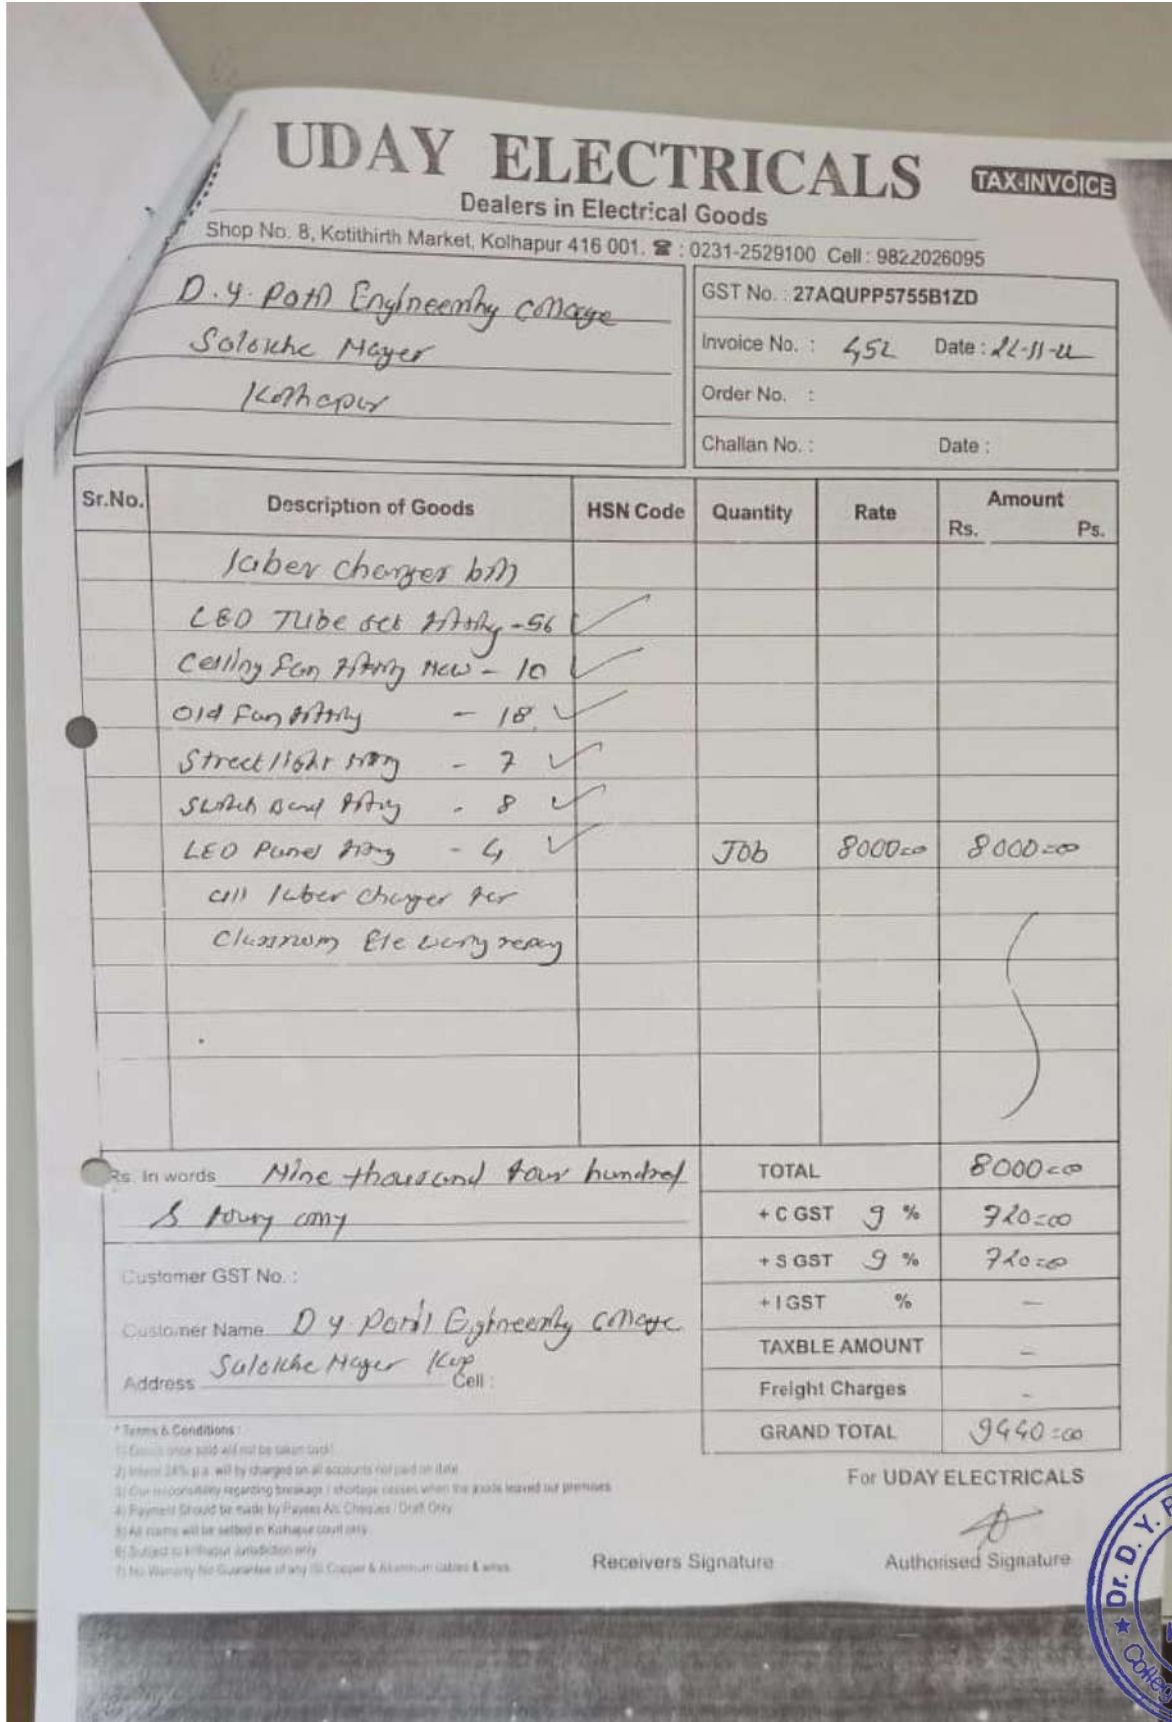 UDAY ELECTRICALS
TAX-INVOICE
Dealers in Electrical Goods
Shop No. 8, Kotithirth Market, Kolhapur 416 001. ☎ : 0231-2529100 Cell : 9822026095
D. Y. Patil Engineering College
Salokhe Nager
Kolhapur
GST No. : 27AQUPP5755B1ZD
Invoice No. : 452 Date : 22-11-22
Order No. :
Challan No. : Date :
Sr.No. Description of Goods HSN Code Quantity Rate Amount
Rs. Ps.
laber charger bill
LED Tube set fitting - 56
Ceiling Fan fitting New - 10
Old Fan fitting - 18
Street light fitting - 7
Switch Bord fitting - 8
LED Panel fitting - 4 Job 8000=00 8000=00
all laber charger for
Classroom Ele repay
Rs. In words Nine thousand four hundred
& foury only
TOTAL 8000=00
+ C GST 9 % 720=00
+ S GST 9 % 720=00
+ I GST % —
TAXBLE AMOUNT —
Freight Charges -
GRAND TOTAL 9440=00
Customer GST No. :
Customer Name D Y Patil Egineering College
Address Salokhe Nager Kop Cell :
* Terms & Conditions :
1) Goods once sold will not be taken back
2) Interst 24% p.a. will by charged on all accounts not paid on date
3) Our responsibility regarding breakage / shortage ceases when the goods leaved our premises
4) Payment Should be made by Payees A/c Cheques / Draft Only
5) All claims will be settled in Kolhapur court only
6) Subject to Kolhapur Jurisdiction only
7) No Warranty No Guarantee of any Copper & Aluminum cables & wires
For UDAY ELECTRICALS
Receivers Signature Authorised Signature
Dr. D. Y. P
★ Colleg